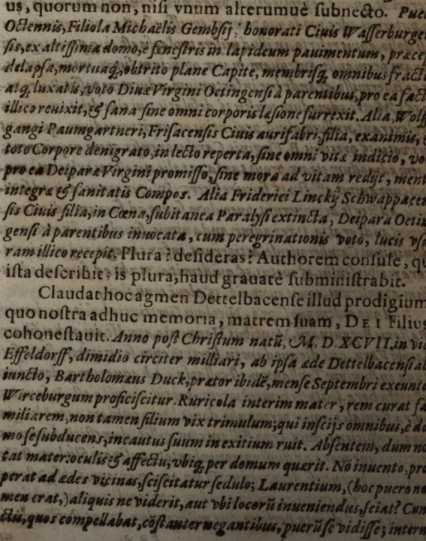 us, quorum non, nisi vnum alterumuè subnecto. Puel
Octennis, Filiola Michaëlis Gembsij, honorati Ciuis Wasserburgen
sis, ex altissima domo, è fenestris in lapideum pauimentum, præcep
delapsa, mortuaq́, obtrito plane Capite, membrisq́ omnibus fractis
atq́ luxatis, voto Diuæ Virgini Oetingensi à parentibus, pro ea facto
illico reuixit, & sana sine omni corporis læsione surrexit. Alia, Wolf
gangi Paumgartneri, Frisacensis Ciuis aurifabri, filia, exanimis, &
toto Corpore denigrato, in lecto reperta, sine omni vitæ inditio, vo
pro ea Deiparæ Virgini promisso, sine mora ad vitam redijt, ment
integra & sanitatis Compos. Alia Friderici Linckij Schwappacen
sis Ciuis filia, in Cœna, subitanea Paralysi extincta, Deipara Oetin
gensi à parentibus inuocata, cum peregrinationis voto, lucis vsu
ram illico recepit. Plura? desideras? Authorem consule, qu
ista describit: is plura, haud grauatè subministrabit.
Claudat hoc agmen Dettelbacense illud prodigium
quo nostra adhuc memoria, matrem suam, DEI Filius
cohonestauit. Anno post Christum natũ, M. D XCVII, in vi
Effeldorff, dimidio circiter milliari, ab ipsa æde Dettelbacensi
iuncto, Bartholomæus Duck, prætor ibidẽ, mense Septembri exeunte
Wirceburgum proficiscitur. Ruricola interim mater, rem curat fa
miliarem, non tamen filium vix trimulum; qui inscijs omnibus, è do
mo se subducens, incautus suum in exitium ruit. Absentem, dum no
tat mater: oculis & affectu, vbiq́ per domum quærit. Nõ inuento, pro
perat ad ædes vicinas, sciscitatur sedulo; Laurentium, (hoc puero no
men erat,) aliquis ne viderit, aut vbi locorũ inueniendus, sciat? Cun
ctis, quos compellabat, cõstanter negantibus, puerũ se vidisse; interu